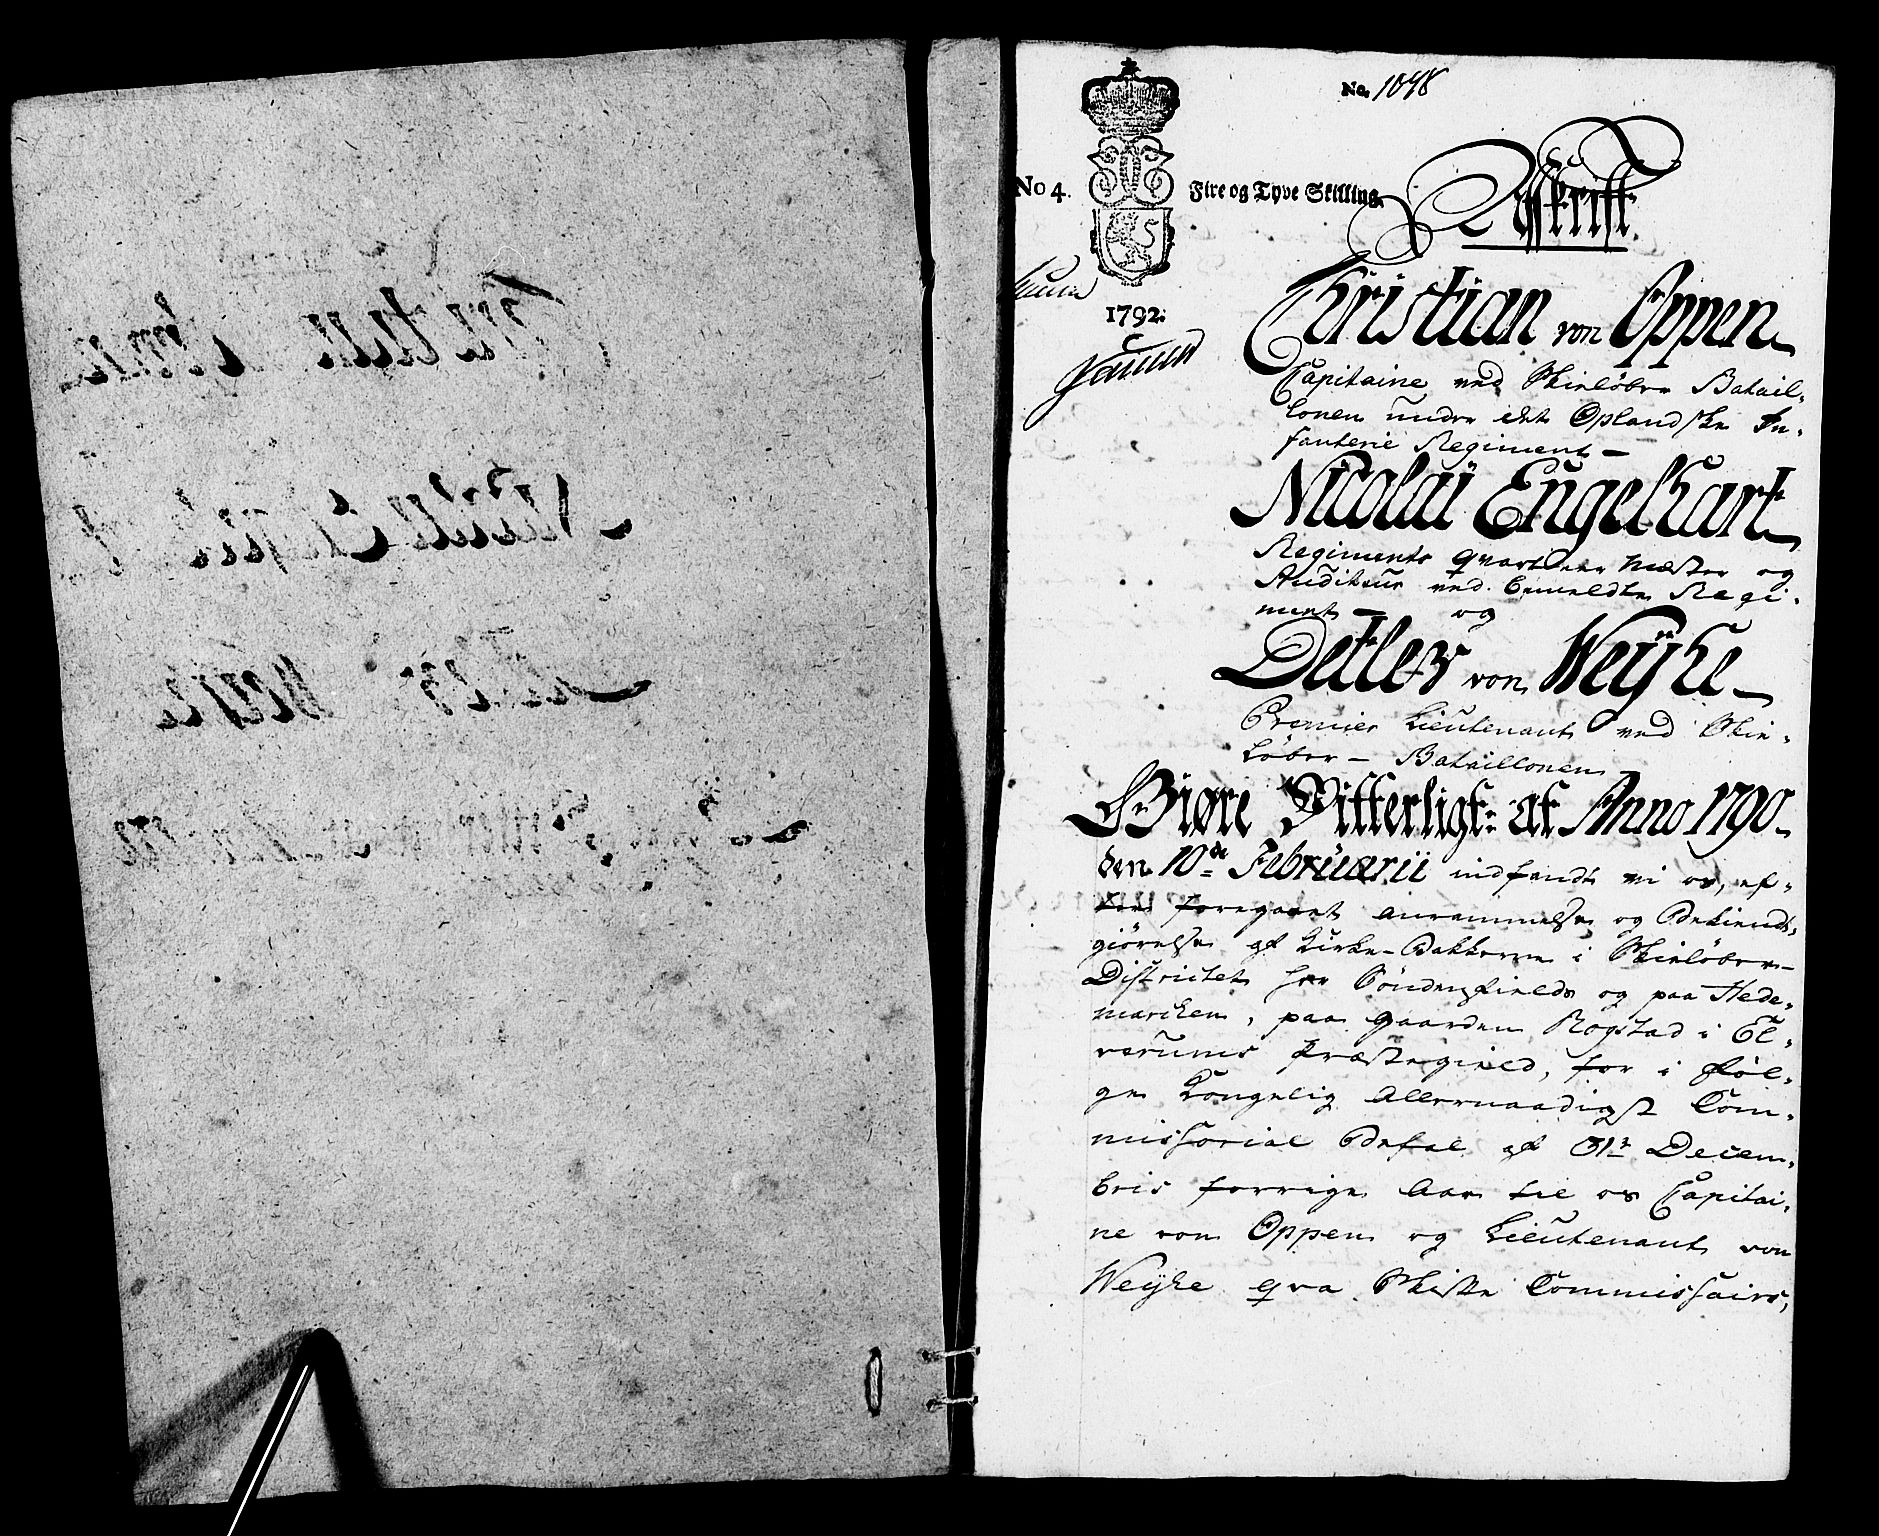 No. 1048
No 4. Fire og Tyve Skilling.
1792.
Afskrift.
Christian von Oppen
Capitaine ved Skieløber Batail-
lonen under det Oplandske In-
fanterie Regiment
Nicolai Engelhart
Regiments Qvarteer Mæster og
Auditeur ved bemeldte Regi-
ment og
Detlev von Weyhe
Premier Lieutenant ved Skie-
løber - Bataillonen
Giøre Vitterligt: at Anno 1790
den 10de Februarii indfandt vi os, ef-
ter foregaaet anrammelse og Bekiendt-
giørelse af Kirke-Bakkerne i Skieløber-
Districtet her Søndenfields og paa Hede-
marchen, paa gaarden Rogstad i El-
verums Præstegield, for i Føl-
ge Kongelig Allernaadigst Com-
missorial Befal af 31te Decem-
bris forrige Aar til os Capitai-
ne von Oppen og Lieutenant von
Weyhe qva Skifte Commissairs,